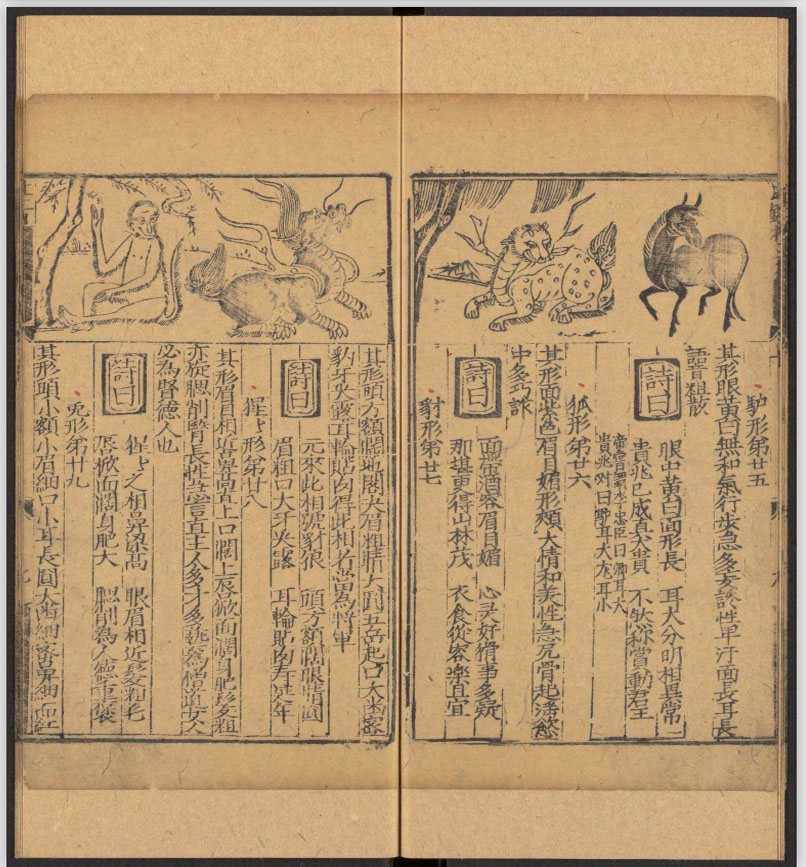 馿形第廿五
其形眼黃白無和氣行步急多言談性卑汙面長耳長
語言狙散
詩曰
眼中黃白面形長　耳大分明相異常
貴兆已成真大貴　不
賞動君王
狐形第廿六
其形面紫色眉目媚形類大情和美性急尻骨起
中多巧
詩曰
面帶酒容眉目媚　心灵好猜事多疑
那堪更得山林茂　衣食從容樂且宜
豺形第廿七
其形頭方額闊地閣大眉粗睛大圓五岳起口大
豹牙尖露耳輪貼肉得此相者當為將軍
詩曰
元來此相號豺狼　頭方額闊眼睛圓
眉粗口大牙尖露　耳輪貼肉壽延年
猩〻形第廿八
其形眉目相近鼻高直上口闊上唇掀面闊身肥髮粗
亦旋腮削臂長性
言直主人多才多藝為僧道女人
必為賢德人也
詩曰
猩〻之相鼻梁高　眼眉相近髮粗毛
唇掀面闊身肥大　腮削為人
兎形第廿九
其形頭小額小眉細口小耳長圓大齒細
鼻細
紅